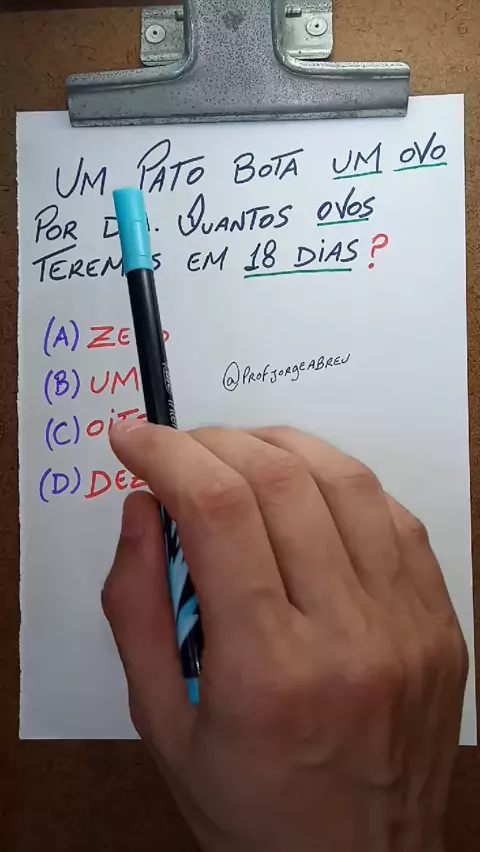 UM PATO BOTA UM OVO
POR QUANTOS OVOS
EM 18 DIAS?
(A)
(B) UM
(C)
(D)
@PROFJORGEABREU